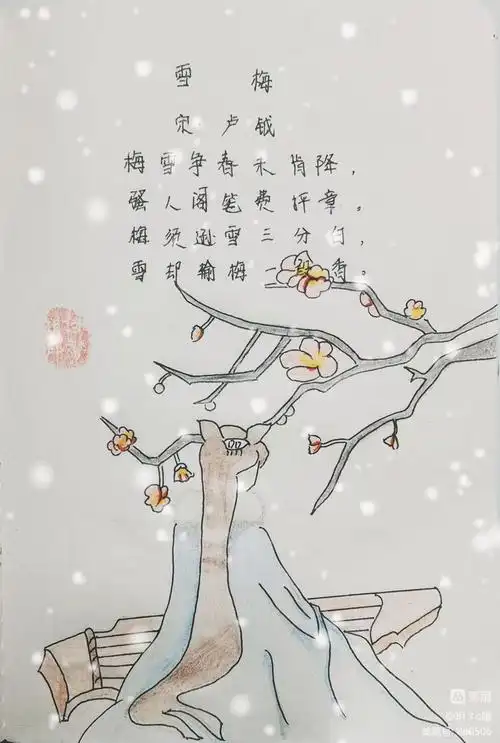 雪 梅
宋 卢 钺
梅雪争春未肯降，
骚人阁笔费评章。
梅须逊雪三分白，
雪却输梅一段香。